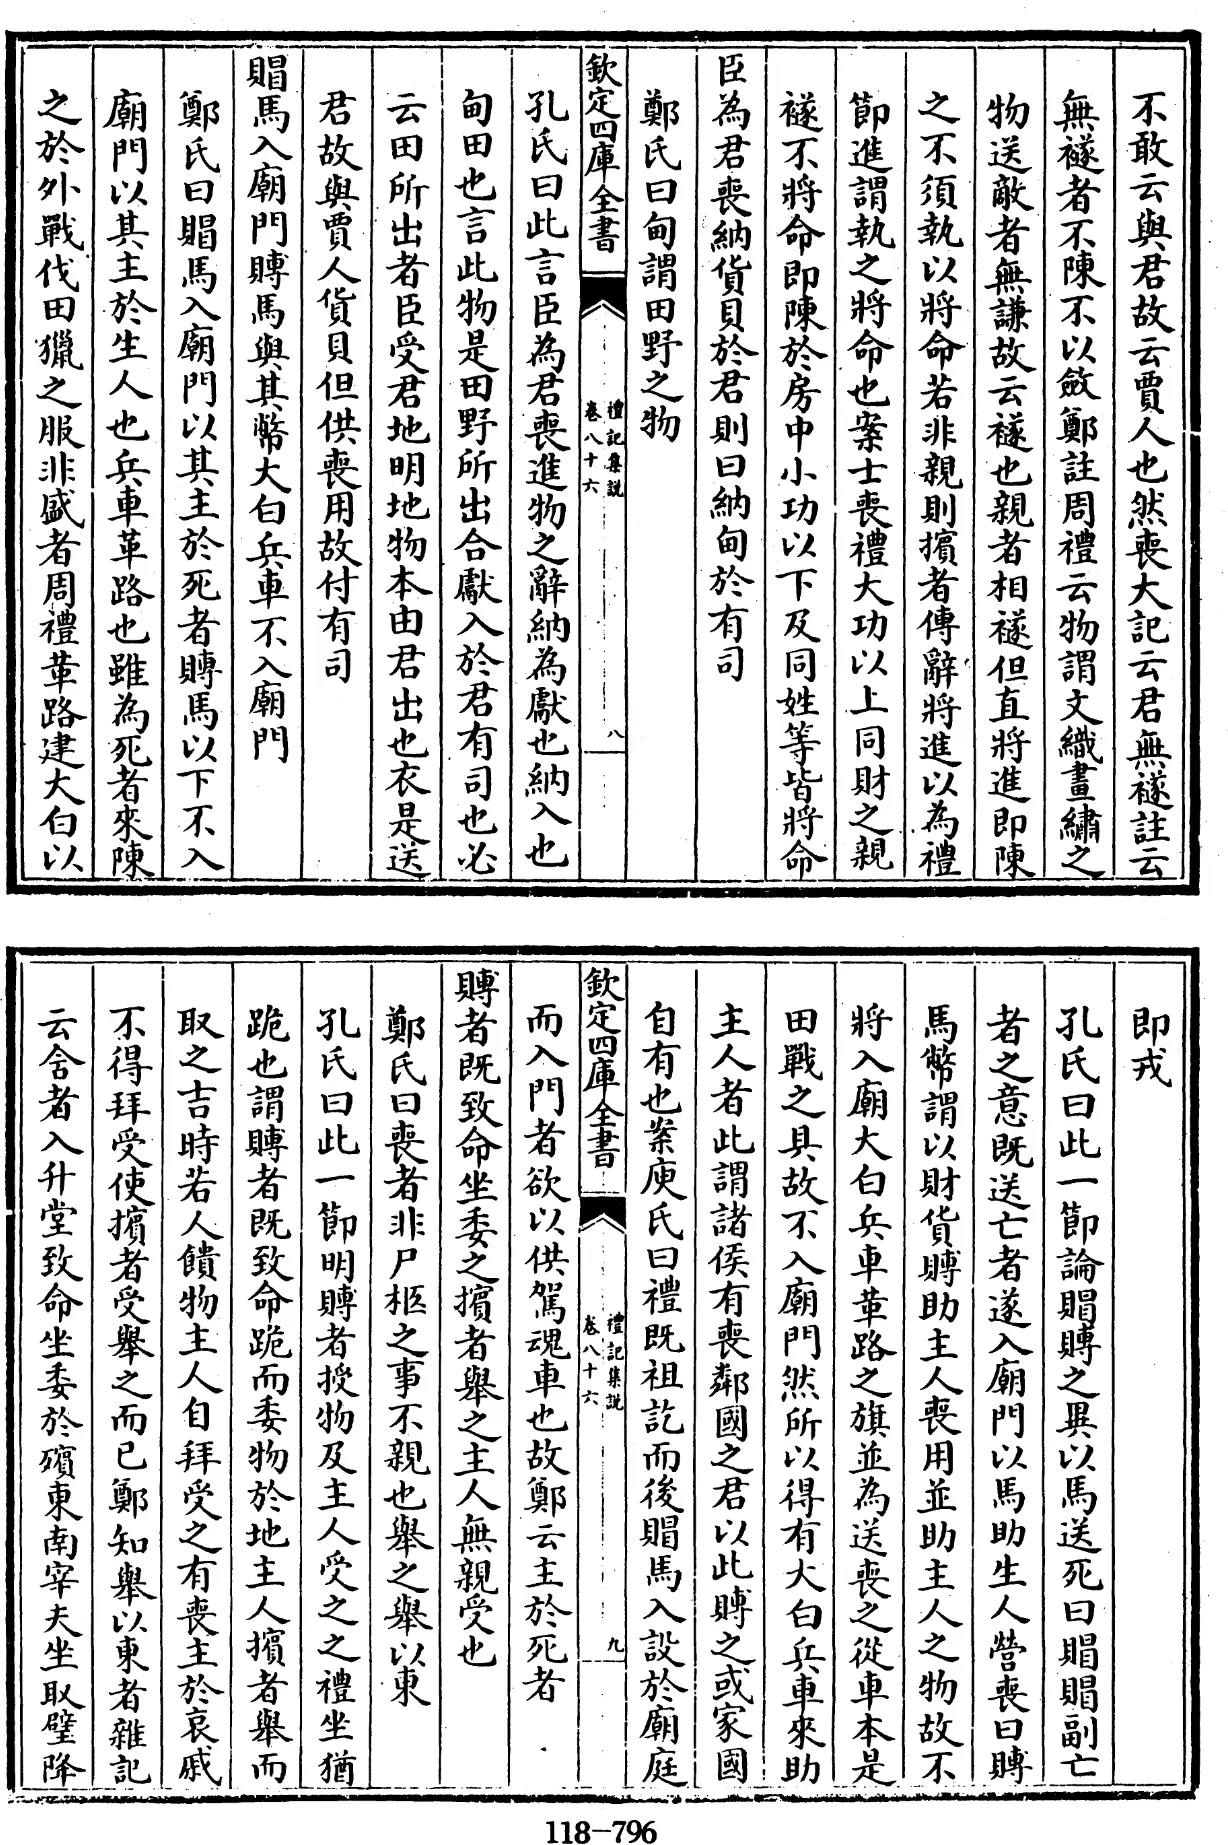 不敢云與君故云賈人也然喪大記云君無襚註云
無襚者不陳不以斂鄭註周禮云物謂文織畫繡之
物送敵者無謙故云襚也親者相襚但直將進即陳
之不須執以將命若非親則擯者傳辭將進以為禮
節進謂執之將命也案士喪禮大功以上同財之親
襚不將命即陳於房中小功以下及同姓等皆將命
臣為君喪納貨貝於君則曰納甸於有司
鄭氏曰甸謂田野之物
欽定四庫全書
禮記集說
卷八十六
八
孔氏曰此言臣為君喪進物之辭納為獻也納入也
甸田也言此物是田野所出合獻入於君有司也必
云田所出者臣受君地明地物本由君出也衣是送
君故與賈人貨貝但供喪用故付有司
賵馬入廟門賻馬與其幣大白兵車不入廟門
鄭氏曰賵馬入廟門以其主於死者賻馬以下不入
廟門以其主於生人也兵車革路也雖為死者來陳
之於外戰伐田獵之服非盛者周禮革路建大白以
即戎
孔氏曰此一節論賵賻之異以馬送死曰賵賵副亡
者之意既送亡者遂入廟門以馬助生人營喪曰賻
馬幣謂以財貨賻助主人喪用並助主人之物故不
將入廟大白兵車革路之旗並為送喪之從車本是
田戰之具故不入廟門然所以得有大白兵車來助
主人者此謂諸侯有喪鄰國之君以此賻之或家國
自有也案庾氏曰禮既祖訖而後賵馬入設於廟庭
欽定四庫全書
禮記集說
卷八十六
九
而入門者欲以供駕魂車也故鄭云主於死者
賻者既致命坐委之擯者舉之主人無親受也
鄭氏曰喪者非尸柩之事不親也舉之舉以東
孔氏曰此一節明賻者授物及主人受之之禮坐猶
跪也謂賻者既致命跪而委物於地主人擯者舉而
取之吉時若人饋物主人自拜受之有喪主於哀戚
不得拜受使擯者受舉之而已鄭知舉以東者雜記
云含者入升堂致命坐委於殯東南宰夫坐取璧降
118-796